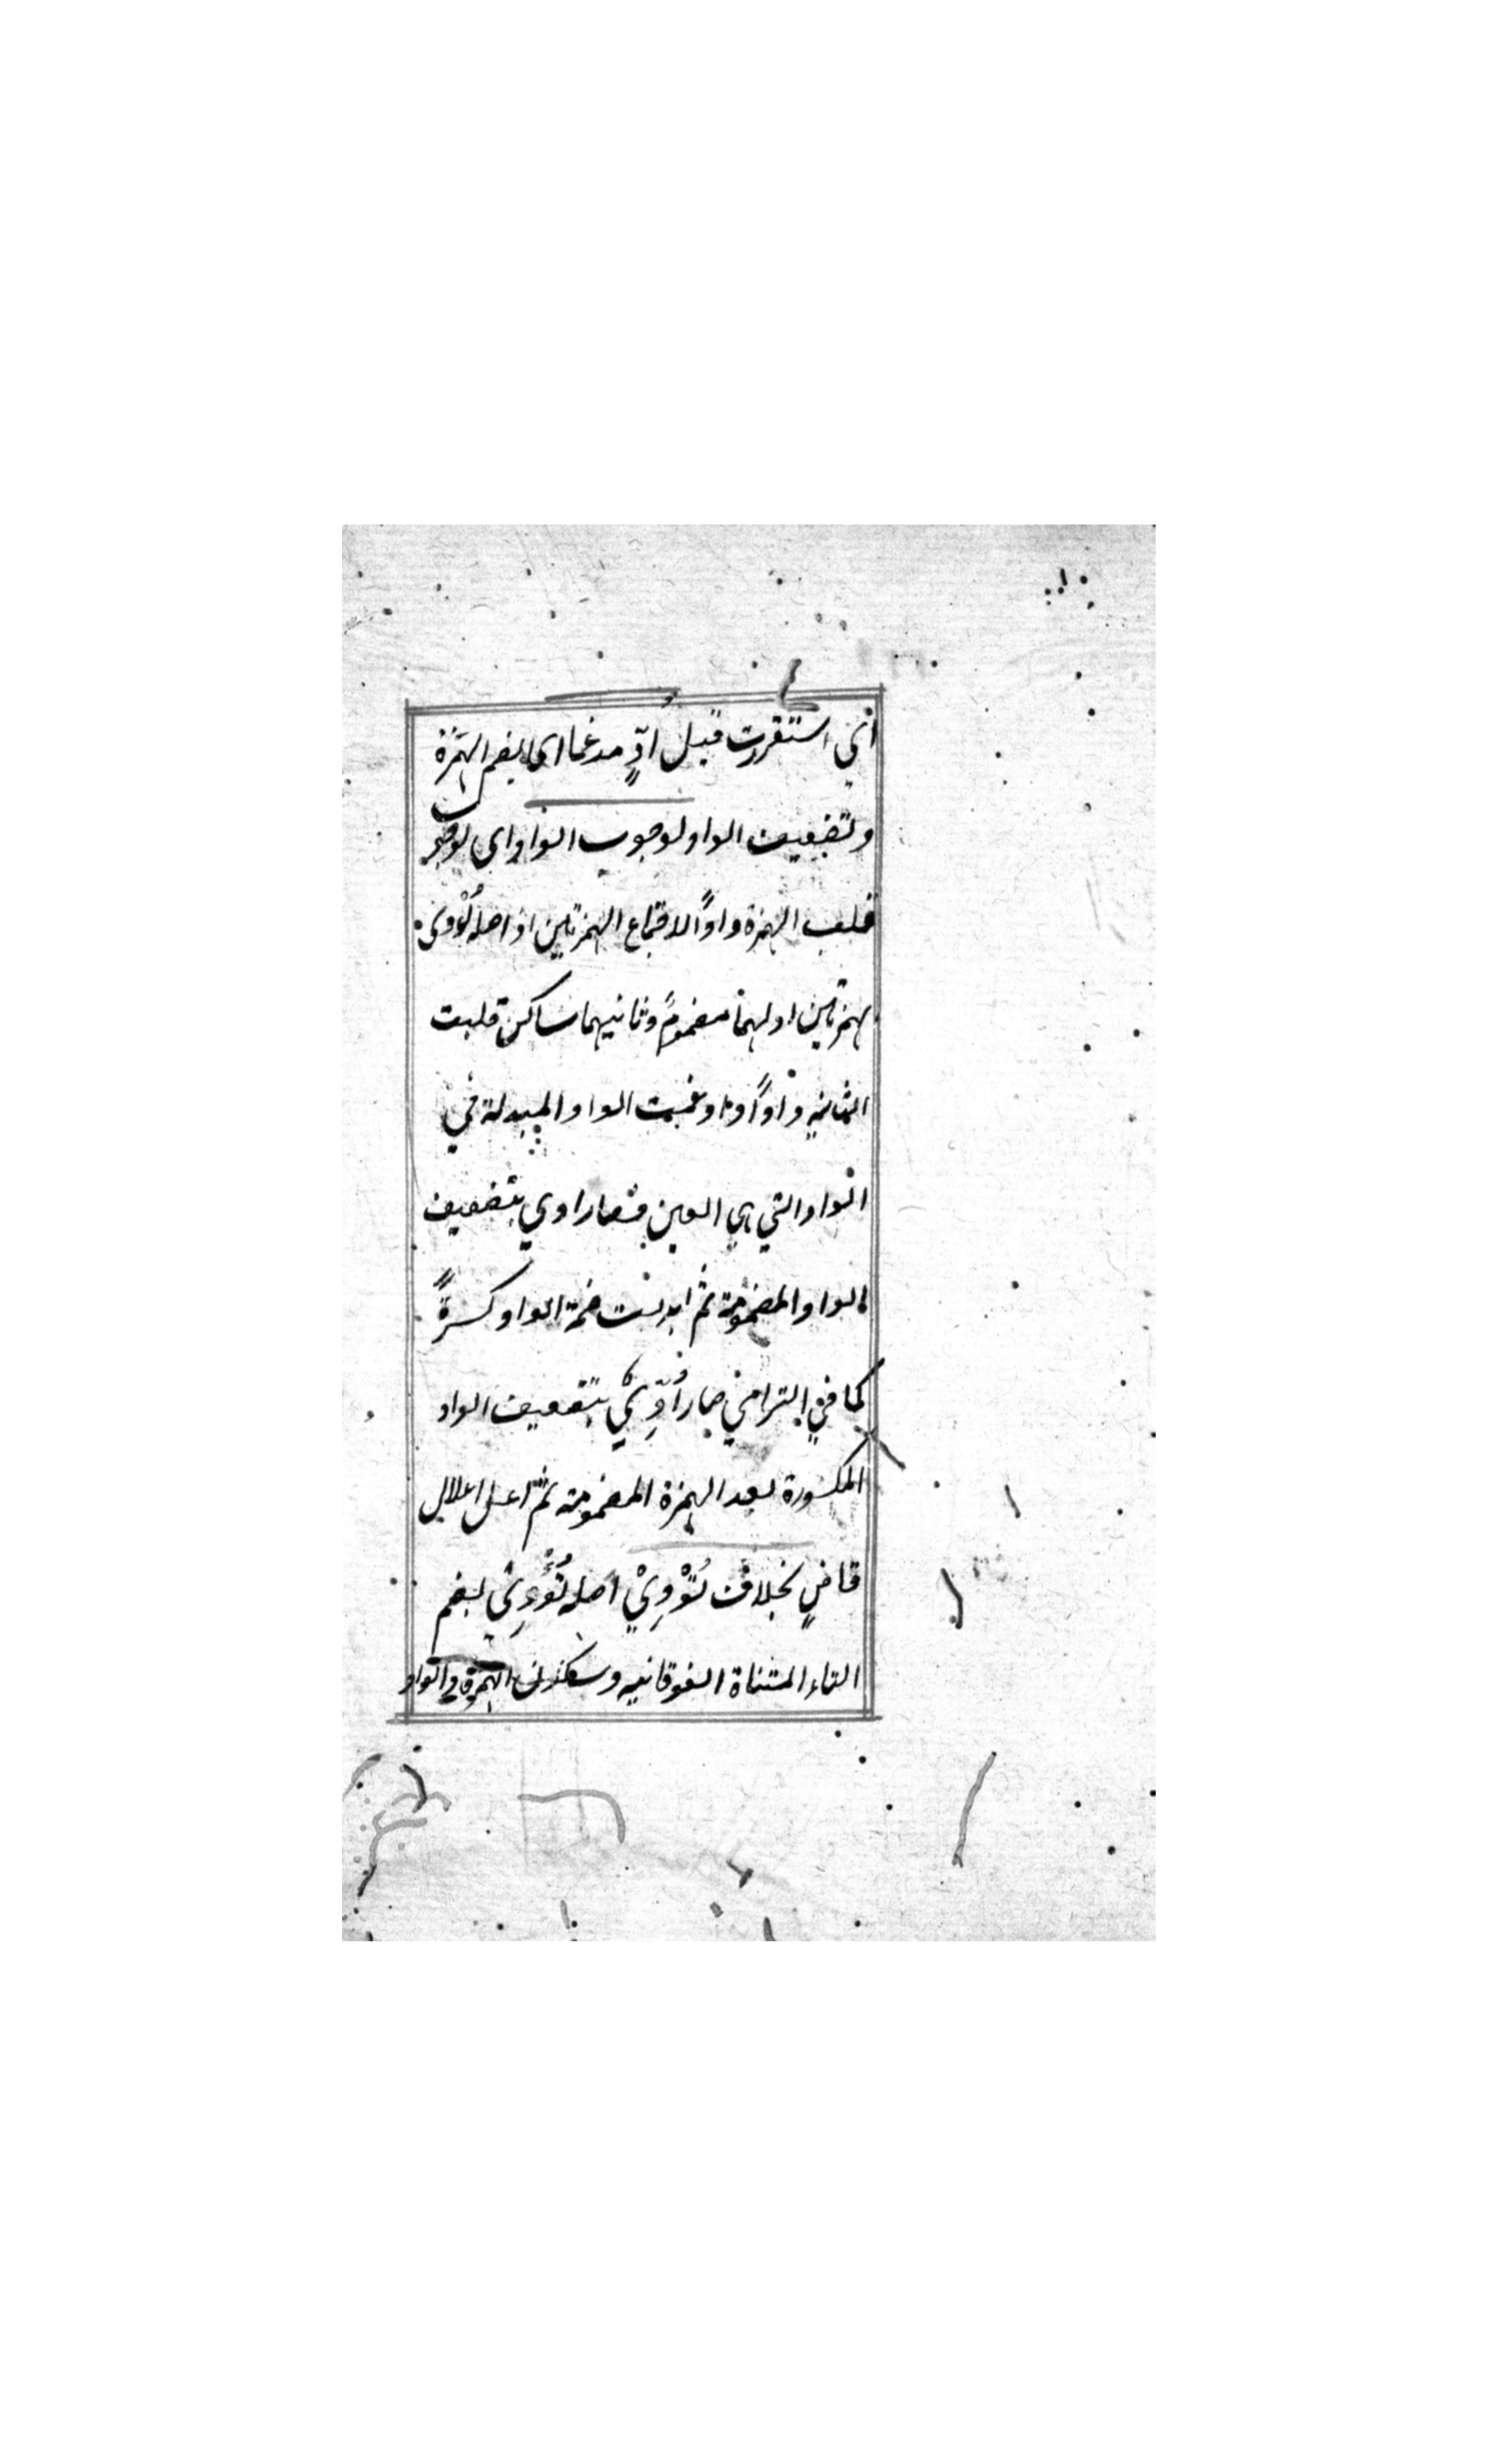 أي استقررت قبل اوٍّ مدغما اي بضم الهمزة
وتضعيف الواو لوجوب الواو اي لوجوب
قلب الهمزة واوًا لاجتماع الهمزتين اذ اصله أُؤْوي
بهمزتين اولهما مضموم وثانيهما ساكن قلبت
الثانيه واوًا وادغمت الواو المبدلة في
الواو التي هي العين فصار اوي بتضعيف
الواو المضمومة ثم ابدلت ضمة الواو كسرةً
كما في الترامي صار أُوِّيٌ بتضعيف الواو
المكسورة بعد الهمزة المضمومة ثم اعل اعلال
قاضٍ بخلاف تُؤْوِيْ اصله تُؤْوِيُ بضم
التاء المثناة الفوقانيه وسكون الهمزة والواو